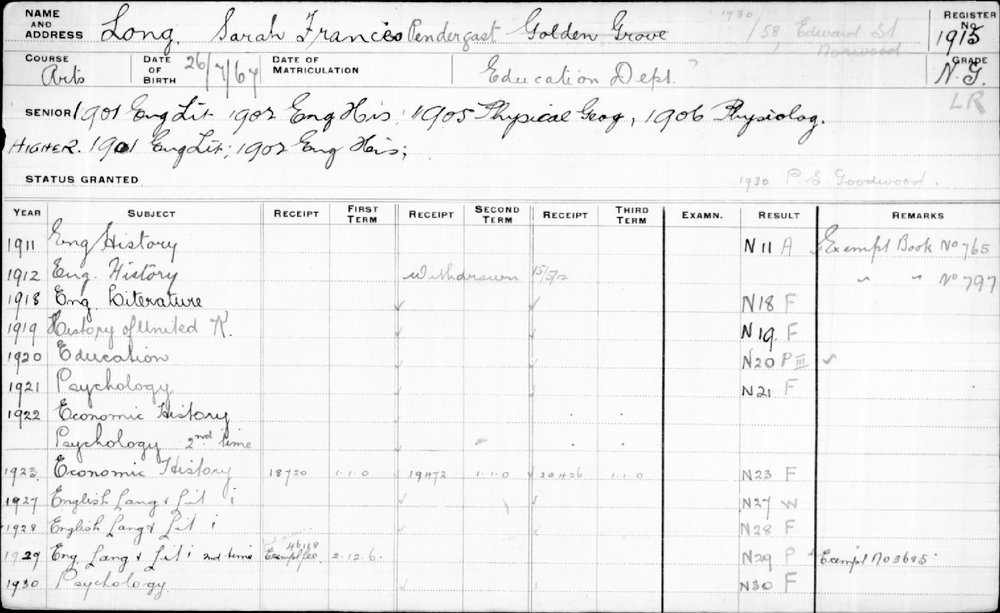 NAME AND ADDRESS Long, Sarah Frances Pendergast Golden Grove 1930 / 58 Edward St Norwood REGISTER No. 1915
COURSE Arts DATE OF BIRTH 26/7/64 DATE OF MATRICULATION Education Dept. GRADE N.G.
LR
SENIOR 1901 Eng Lit. 1902 Eng His; 1905 Physical Geog, 1906 Physiolog.
HIGHER. 1901 Eng Lit; 1902 Eng His;
STATUS GRANTED 1930 P. S. Goodwood.
YEAR SUBJECT RECEIPT FIRST TERM RECEIPT SECOND TERM RECEIPT THIRD TERM EXAMN. RESULT REMARKS
1911 Eng History N11 A Exempt Book No 765
1912 Eng. History withdrawn 15/5/12 " " No 797
1918 Eng Literature ✓ ✓ N18 F
1919 History of United K. ✓ ✓ N19 F
1920 Education ✓ ✓ N20 P III ✓
1921 Psychology ✓ ✓ N21 F
1922 Economic History
Psychology 2nd time ✓
1923 Economic History 18720 1.1.0 ✓ 19472 1.1.0 ✓ 20426 1.1.0 N23 F
1927 English Lang & Lit i ✓ ✓ N27 W
1928 English Lang & Lit i ✓ ✓ N28 F
1929 Eng. Lang & Lit i 2nd time Exempt fee 2.12.6. N29 P Exempt No 3685
1930 Psychology ✓ N30 F